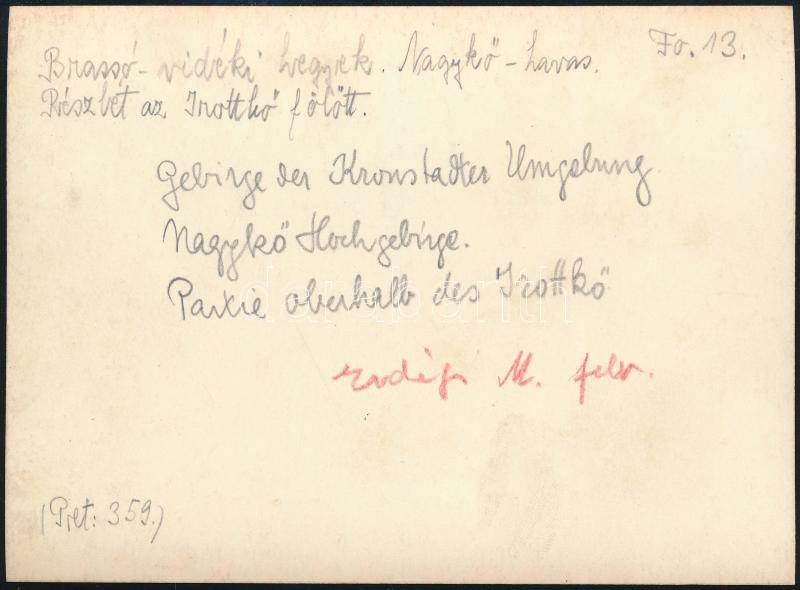 Brassó-vidéki hegyek. Nagykő-havas. Fo. 13.
Részlet az Irottkő fölött.
Gebirge der Kronstadter Umgebung
Nagykő Hochgebirge.
Partie oberhalb des Irottkő
M. felv.
(Pret: 359.)
darabanth